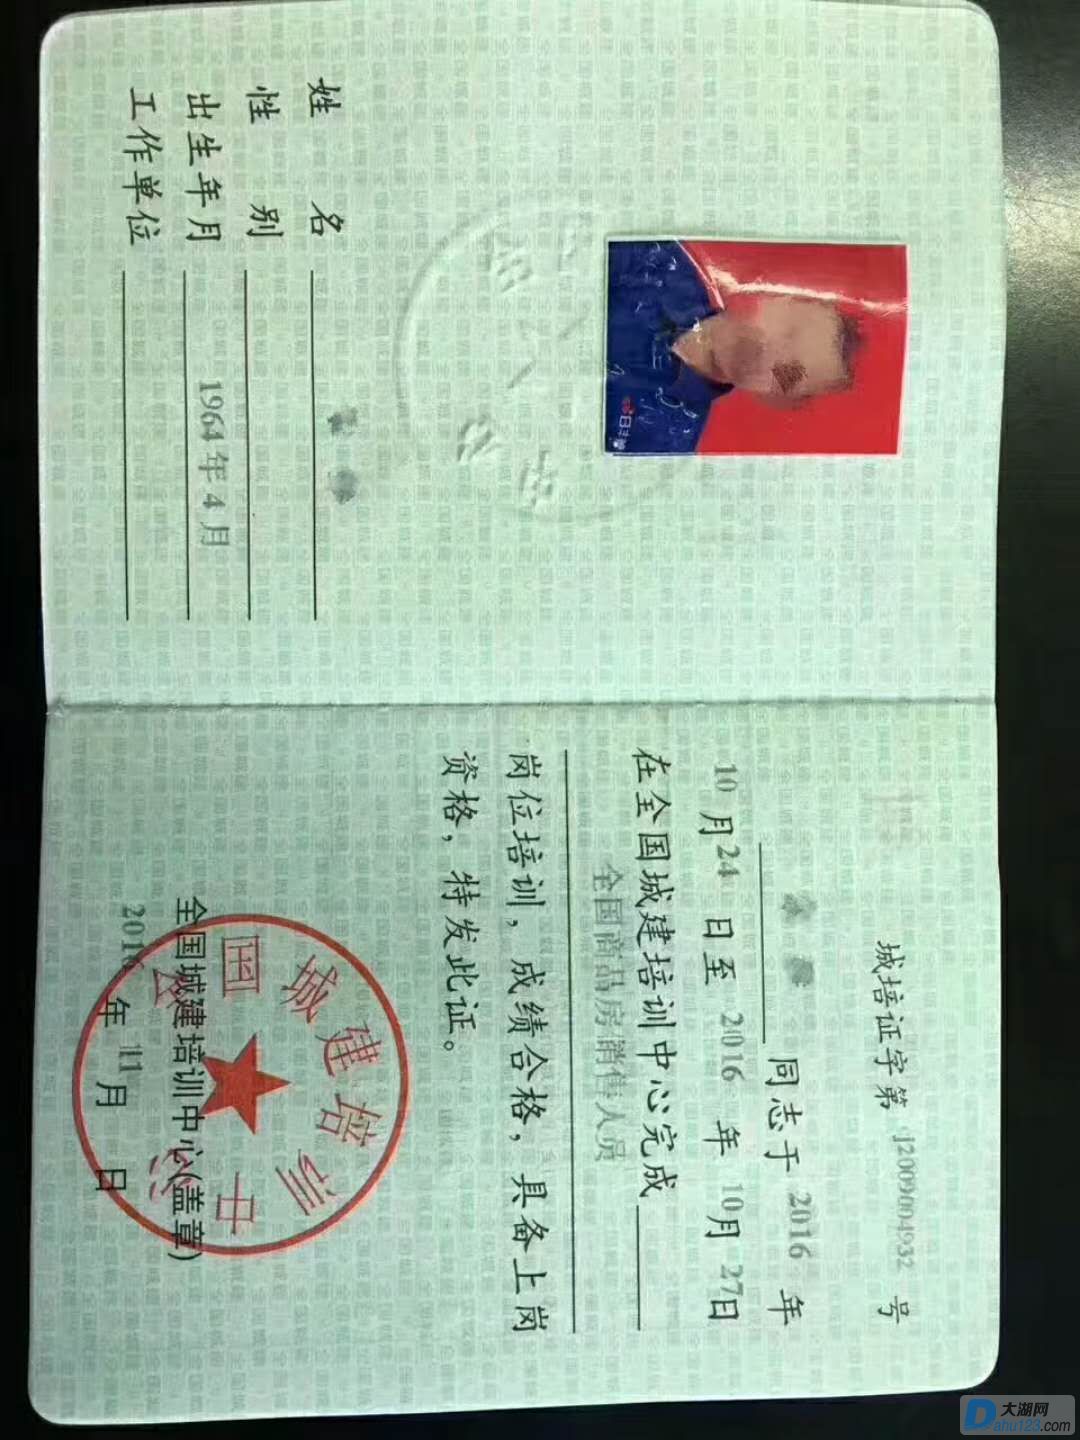 姓 名
性 别
出生年月 1964年4月
工作单位
城培证字第 J2009004932 号
同志于 2016 年
10 月 24 日至 2016 年 10 月 27 日
在全国城建培训中心完成
全国商品房销售人员
岗位培训，成绩合格，具备上岗
资格，特发此证。
全国城建培训中心(盖章)
2016 年 11 月 日
全国城建培训中心
大湖网
Dahu123.com